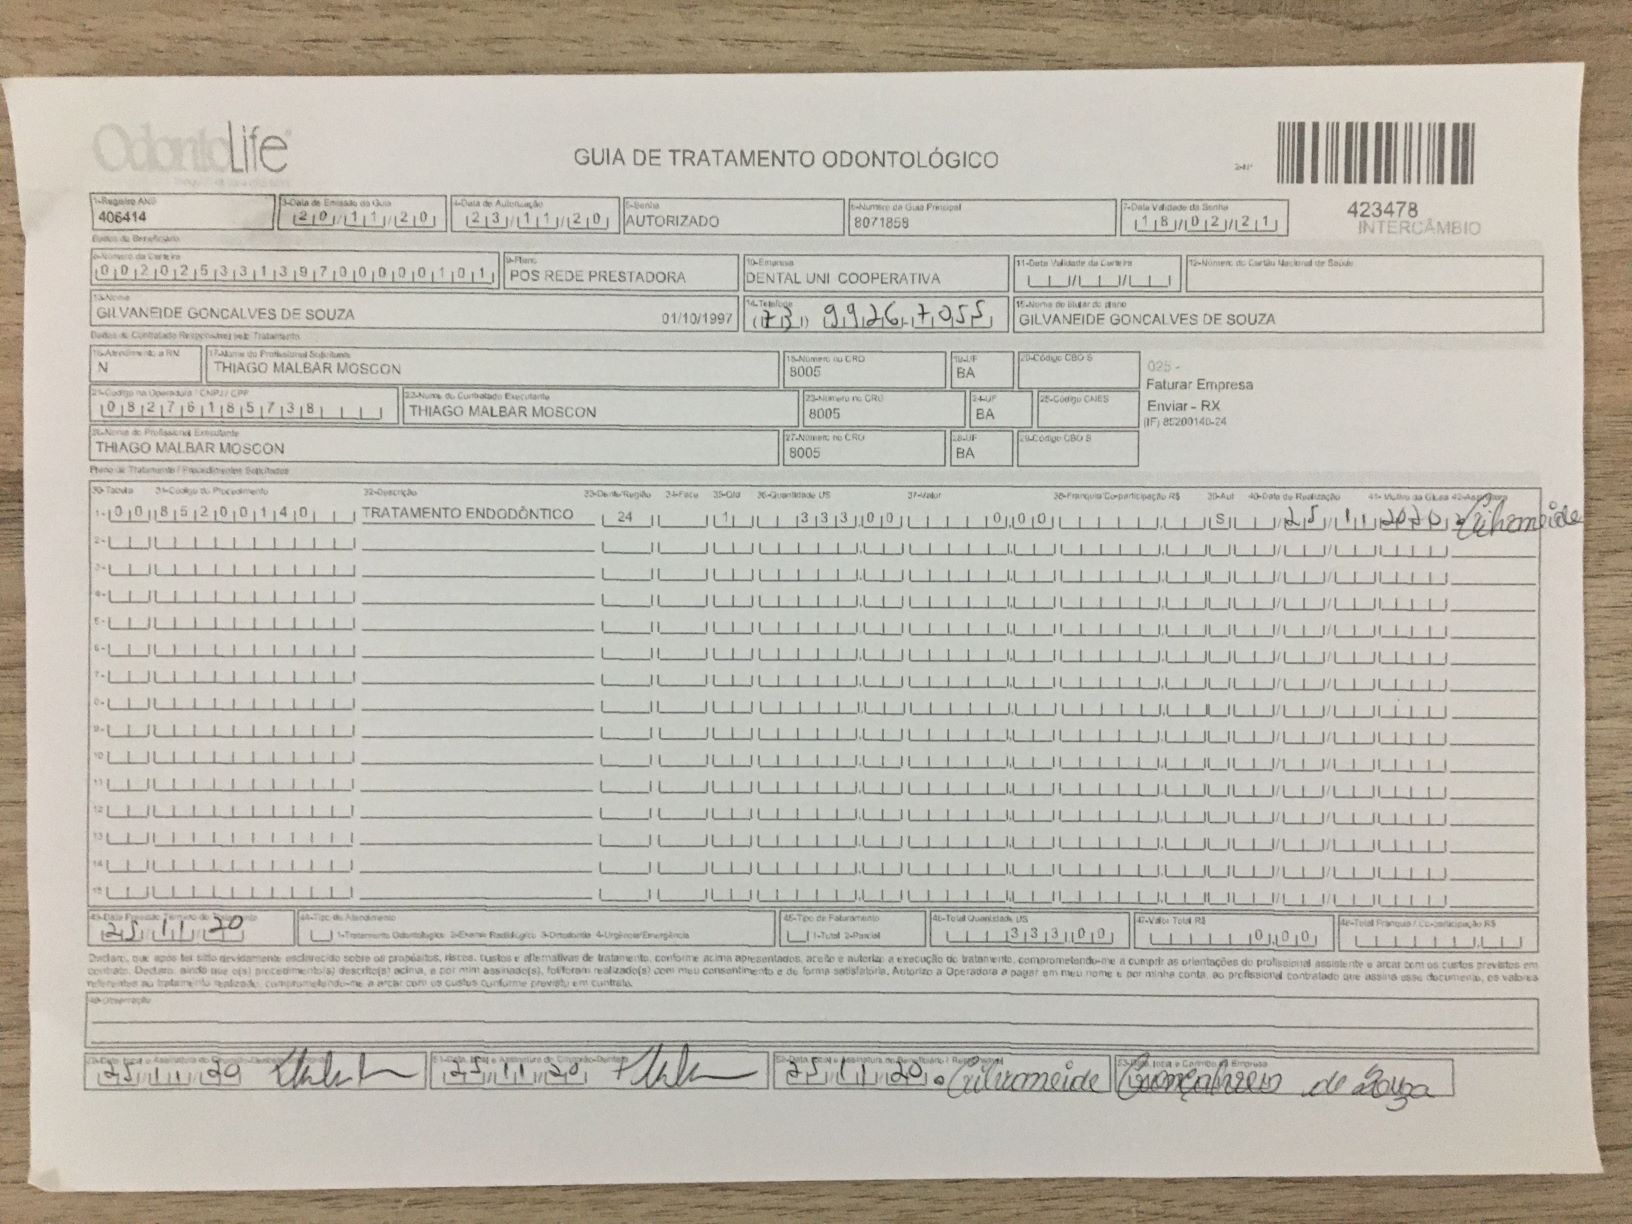 OdontoLife
GUIA DE TRATAMENTO ODONTOLÓGICO
2-Nº
1-Registro ANS
406414
3-Data de Emissão da Guia
20/11/20
4-Data de Autorização
23/11/20
5-Senha
AUTORIZADO
6-Número da Guia Principal
8071858
7-Data Validade da Senha
18/02/21
423478
INTERCÂMBIO
Dados do Beneficiário
8-Número da Carteira
00202533139700000101
9-Plano
POS REDE PRESTADORA
10-Empresa
DENTAL UNI COOPERATIVA
11-Data Validade da Carteira
12-Número do Cartão Nacional de Saúde
13-Nome
GILVANEIDE GONCALVES DE SOUZA 01/10/1997
14-Telefone
(73) 9926-7055
15-Nome do titular do plano
GILVANEIDE GONCALVES DE SOUZA
Dados do Contratado Responsável pelo Tratamento
16-Atendimento a RN
N
17-Nome do Profissional Solicitante
THIAGO MALBAR MOSCON
18-Número no CRO
8005
19-UF
BA
20-Código CBO S
025 -
Faturar Empresa
Enviar - RX
(IF) 85200140-24
21-Código na Operadora / CNPJ / CPF
08276185738
22-Nome do Contratado Executante
THIAGO MALBAR MOSCON
23-Número no CRO
8005
24-UF
BA
25-Código CNES
26-Nome do Profissional Executante
THIAGO MALBAR MOSCON
27-Número no CRO
8005
28-UF
BA
29-Código CBO S
Plano de Tratamento / Procedimentos Solicitados
30-Tabela 31-Código do Procedimento 32-Descrição 33-Dente/Região 34-Face 35-Qtd 36-Quantidade US 37-Valor 38-Franquia/Co-participação R$ 39-Aut 40-Data de Realização 41-Motivo da Glosa 42-Assinatura
1- 00 85200140 TRATAMENTO ENDODÔNTICO 24 1 333,00 0,00 S 25/11/2020 Gilvaneide
2-
3-
4-
5-
6-
7-
8-
9-
10
11
12
13
14
15
43-Data Previsão Término do Tratamento
25/11/20
44-Tipo de Atendimento
1-Tratamento Odontológico 2-Exame Radiológico 3-Ortodontia 4-Urgência/Emergência
45-Tipo de Faturamento
1-Total 2-Parcial
46-Total Quantidade US
333,00
47-Valor Total R$
0,00
48-Total Franquia / Co-participação R$
Declaro, que após ter sido devidamente esclarecido sobre os propósitos, riscos, custos e alternativas de tratamento, conforme acima apresentados, aceito e autorizo a execução do tratamento, comprometendo-me a cumprir as orientações do profissional assistente e arcar com os custos previstos em
contrato. Declaro, ainda que o(s) procedimento(s) descrito(s) acima, e por mim assinado(s), foi/foram realizado(s) com meu consentimento e de forma satisfatória. Autorizo a Operadora a pagar em meu nome e por minha conta, ao profissional contratado que assina esse documento, os valores
referentes ao tratamento realizado, comprometendo-me a arcar com os custos conforme previsto em contrato.
49-Observação
25/11/20
51-Data, local e Assinatura do Cirurgião-Dentista
25/11/20
52-Data, local e Assinatura do Beneficiário / Responsável
25/11/20 Gilvaneide Gonçalves de Souza
53-Data, local e Carimbo da Empresa